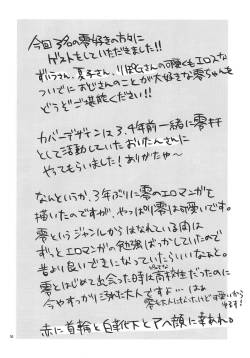 今回3名の零好きの方々に
ゲストをしていただきました!!
さん、真子さん、リボGさんの可愛くもエロスな
ついでにおじさんのことが大好きな零ちゃんを
どうぞご堪能ください!!
カバーデザインは3、4年前一緒に零村
として活動していたおいたんさんに
やってもらいました!ありがたや〜
なんというか、3年ぶりに零のエロマンガを
描いたのですが、やっぱり零は可愛いです。
零というジャンルからはなれている間は
ずっとエロマンガの勉強ばっかしていたので
昔より良いできになっていたらいいなぁと。
零とはじめて出会った時は高校生だったのに
今やすっかり汚れた大人ですよ…はぁ
零も大人になったけど可愛いから
ゆるす!
赤に首輪と白ハイ下とアヘ顔に幸あれ。